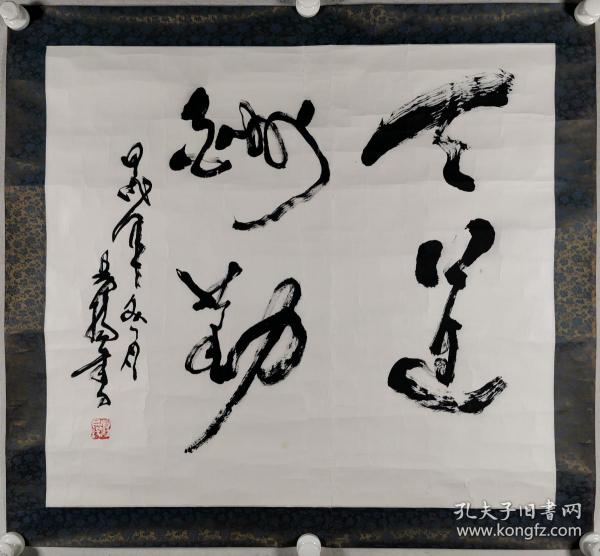 天道
酬勤
甲戌年
月
书
孔夫子旧书网
www.kongfz.com